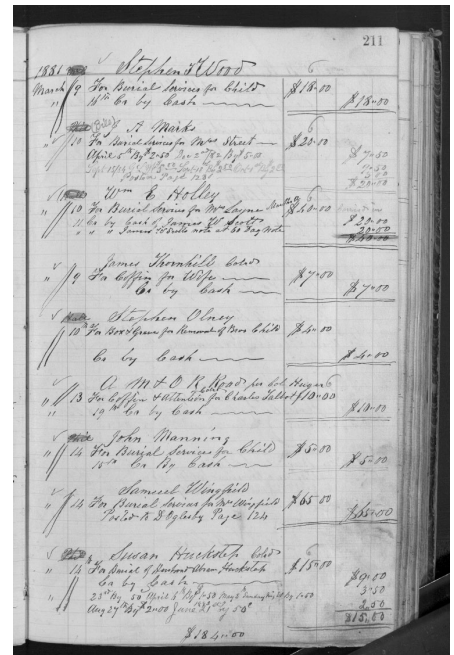 211
1881 Stephen F Wood 6
March 9 For Burial Services for Child $18.00
18th Cr by Cash $18.00
A Marks 6
" 10 For Burial Services for Mrs Street $20.00
April 5th By $2.50 By $5.00 $7.50
Posted Page 123
$20.00
Wm E. Holley 6
" 10 For Burial Services for Mrs Layne $40.00
11 Cr by Cash James W Scott $20.00
" " " James W Scott note at 60 Day Note 20.00
$40.00
James Thornhill Cold
" 9 For Coffin for Wife $7.00
Cr by Cash $7.00
Stephen Olney
" 10th For Box & Grave for Removal of Bros Child $4.00
Cr by Cash $4.00
A M & O R Road per Col. 6
" 13 For Coffin & Attention for Charles Talbot $10.00
19th Cr by Cash $10.00
John Manning
" 14 For Burial Services for Child $5.00
15th Cr By Cash $5.00
Samuel Wingfield
" 14 For Burial Services for Mrs Wingfield $65.00
Posted to D Oglesby Page 124 $65.00
Susan Huckstep Cold 6
" 14 For Burial of Husband Huckstep $15.00
Cr by Cash $9.00
23rd By 50c April 4th By $1.50 By 1.50 3.50
Aug 27th By $2.00 By 50c 2.50
$15.00
$184.00